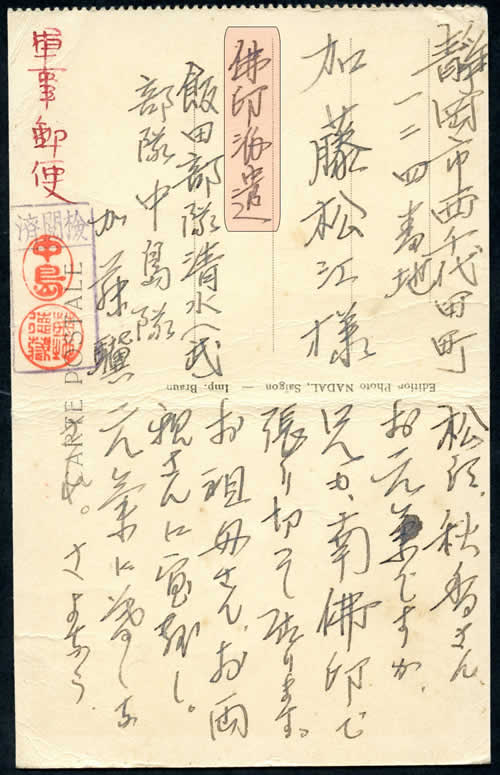 靜岡市西千代田町
一二四番地
加藤松江様
佛印派遣
飯田部隊清水(武)
部隊中島隊
加藤
軍事郵便
檢閲濟
中島
CARTE POSTALE
Edition Photo NADAL, Saigon — Imp. Braun
松江、秋香さん、
お元氣ですか、
兄も、南佛印で
張り切って居ります。
お祖母さん、お両
親さんに宜敷し。
元氣に暮しな
さようなら